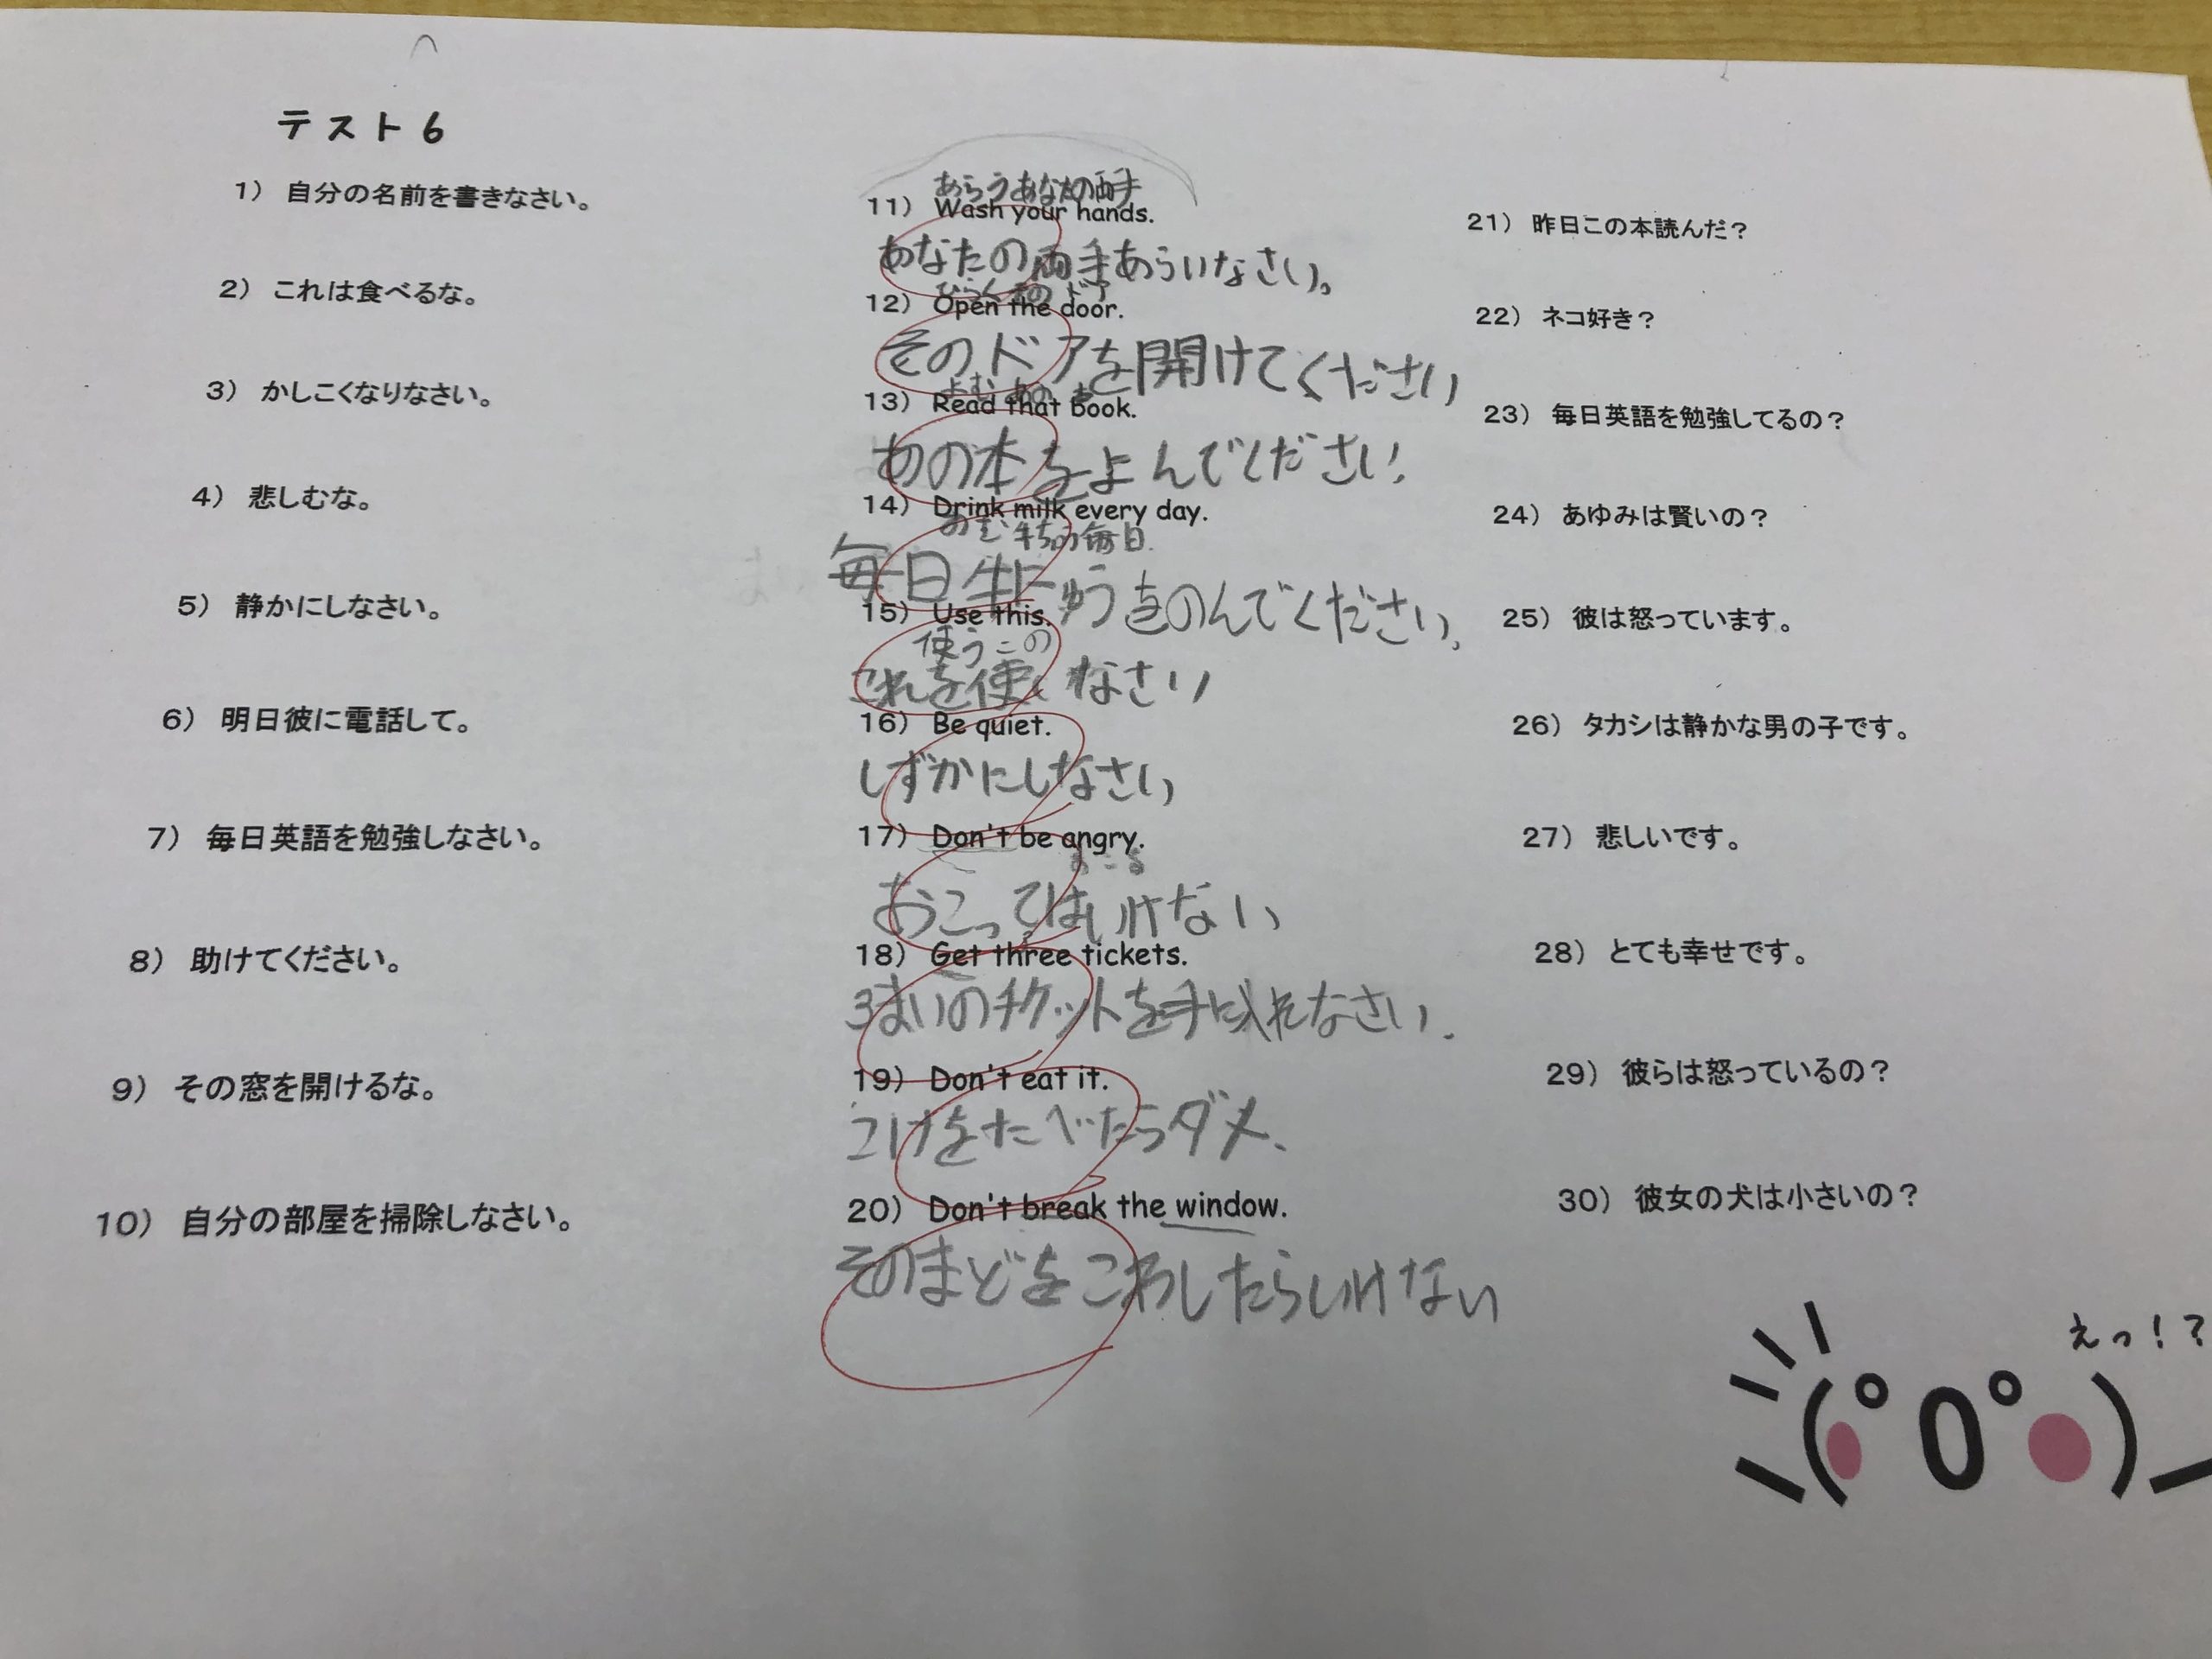 テスト6
1) 自分の名前を書きなさい。
2) これは食べるな。
3) かしこくなりなさい。
4) 悲しむな。
5) 静かにしなさい。
6) 明日彼に電話して。
7) 毎日英語を勉強しなさい。
8) 助けてください。
9) その窓を開けるな。
10) 自分の部屋を掃除しなさい。
あらうあなたの両手
11) Wash your hands.
あなたの両手あらいなさい。
ひらく その ドア
12) Open the door.
そのドアを開けてください
よむ あの 本
13) Read that book.
あの本をよんでください
14) Drink milk every day.
のむ 毎日
毎日牛にゅうをのんでください。
15) Use this.
使うこの
これを使いなさい
16) Be quiet.
しずかにしなさい
17) Don't be angry.
おこる
おこってはいけない
18) Get three tickets.
3まいのチケットを手に入れなさい.
19) Don't eat it.
をたべたらダメ、
20) Don't break the window.
そのまどをこわしたらいけない
21) 昨日この本読んだ？
22) ネコ好き？
23) 毎日英語を勉強してるの？
24) あゆみは賢いの？
25) 彼は怒っています。
26) タカシは静かな男の子です。
27) 悲しいです。
28) とても幸せです。
29) 彼らは怒っているの？
30) 彼女の犬は小さいの？
えっ!?
(°0°)